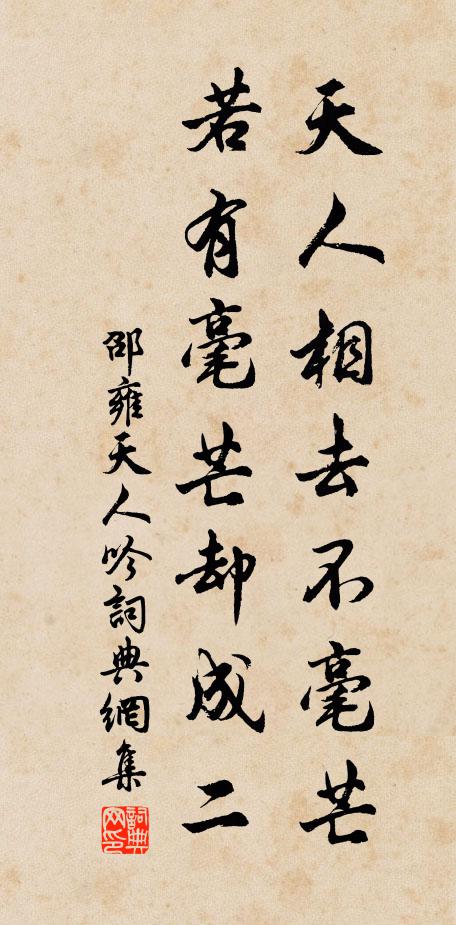 天人相去不毫芒
若有毫芒却成二
邵雍天人吟詞典網集
詞典網印